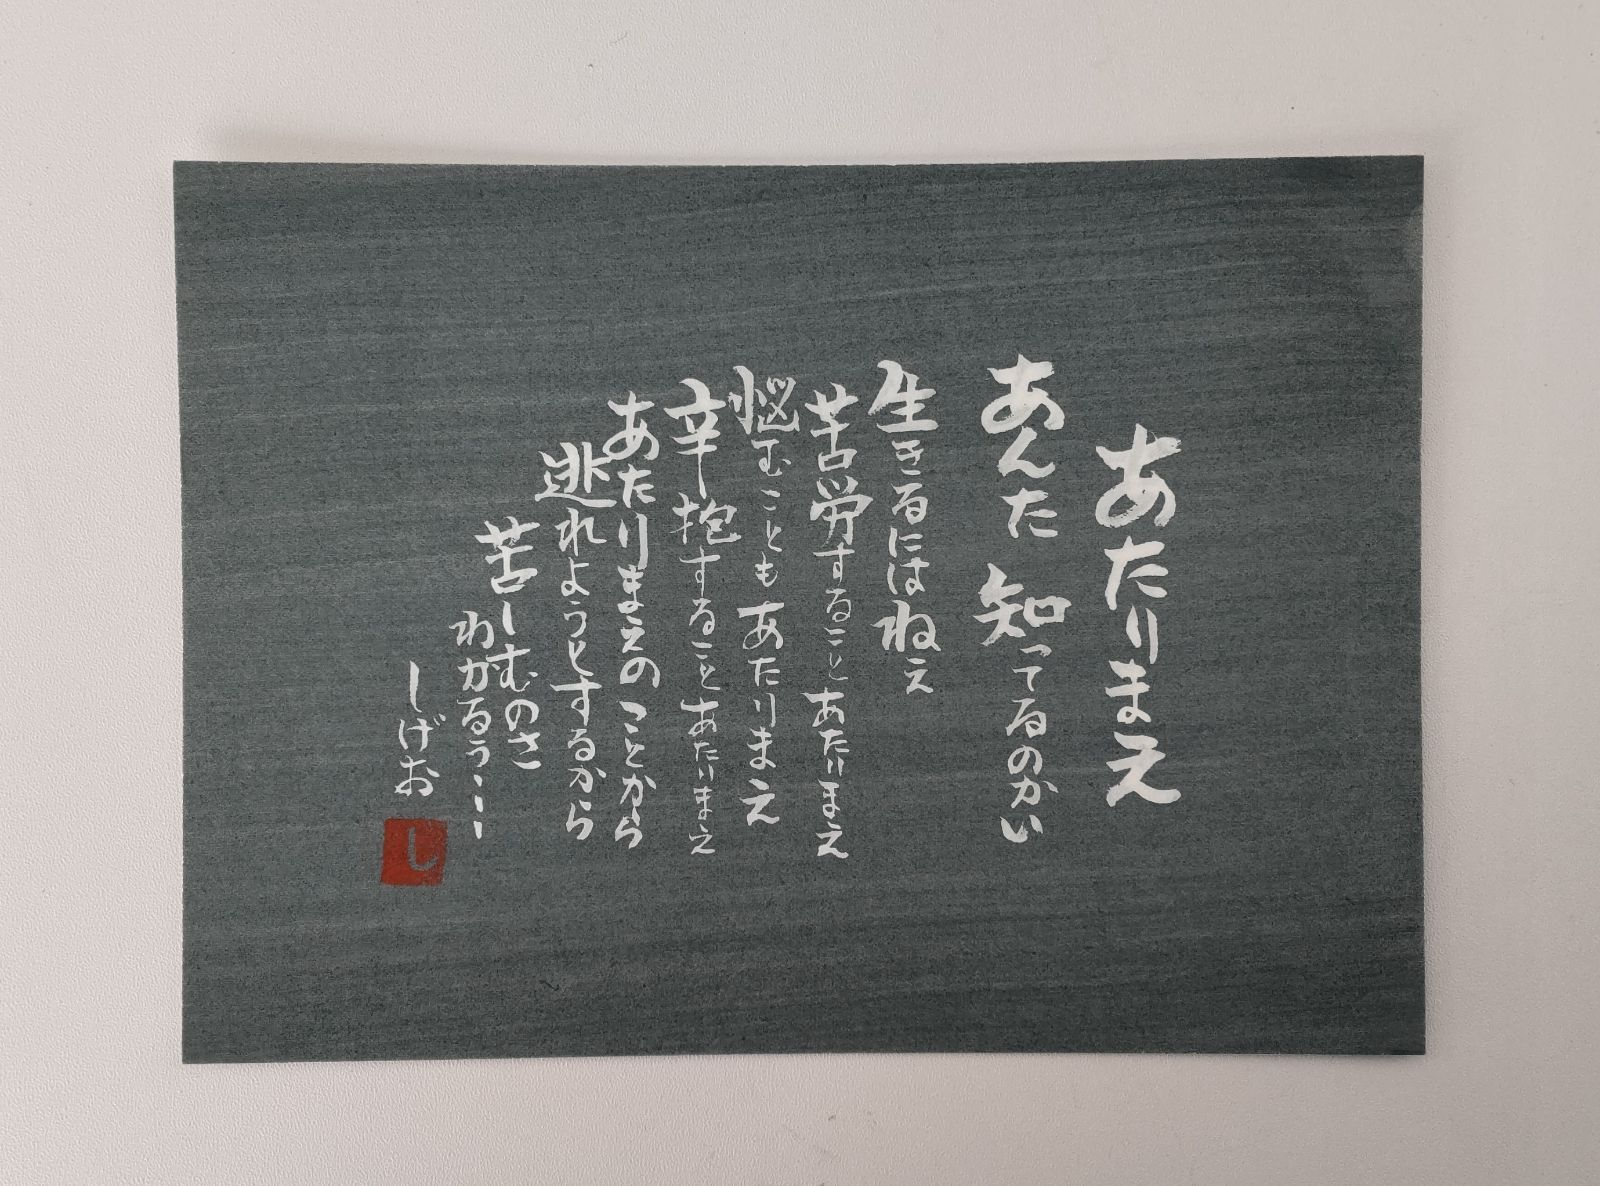 あたりまえ
あんた 知ってるのかい
生きるにはねえ
苦労することあたりまえ
悩むこともあたりまえ
辛抱することあたりまえ
あたりまえのことから
逃れようとするから
苦しむのさ
わかるぅ・・・
しげお
し